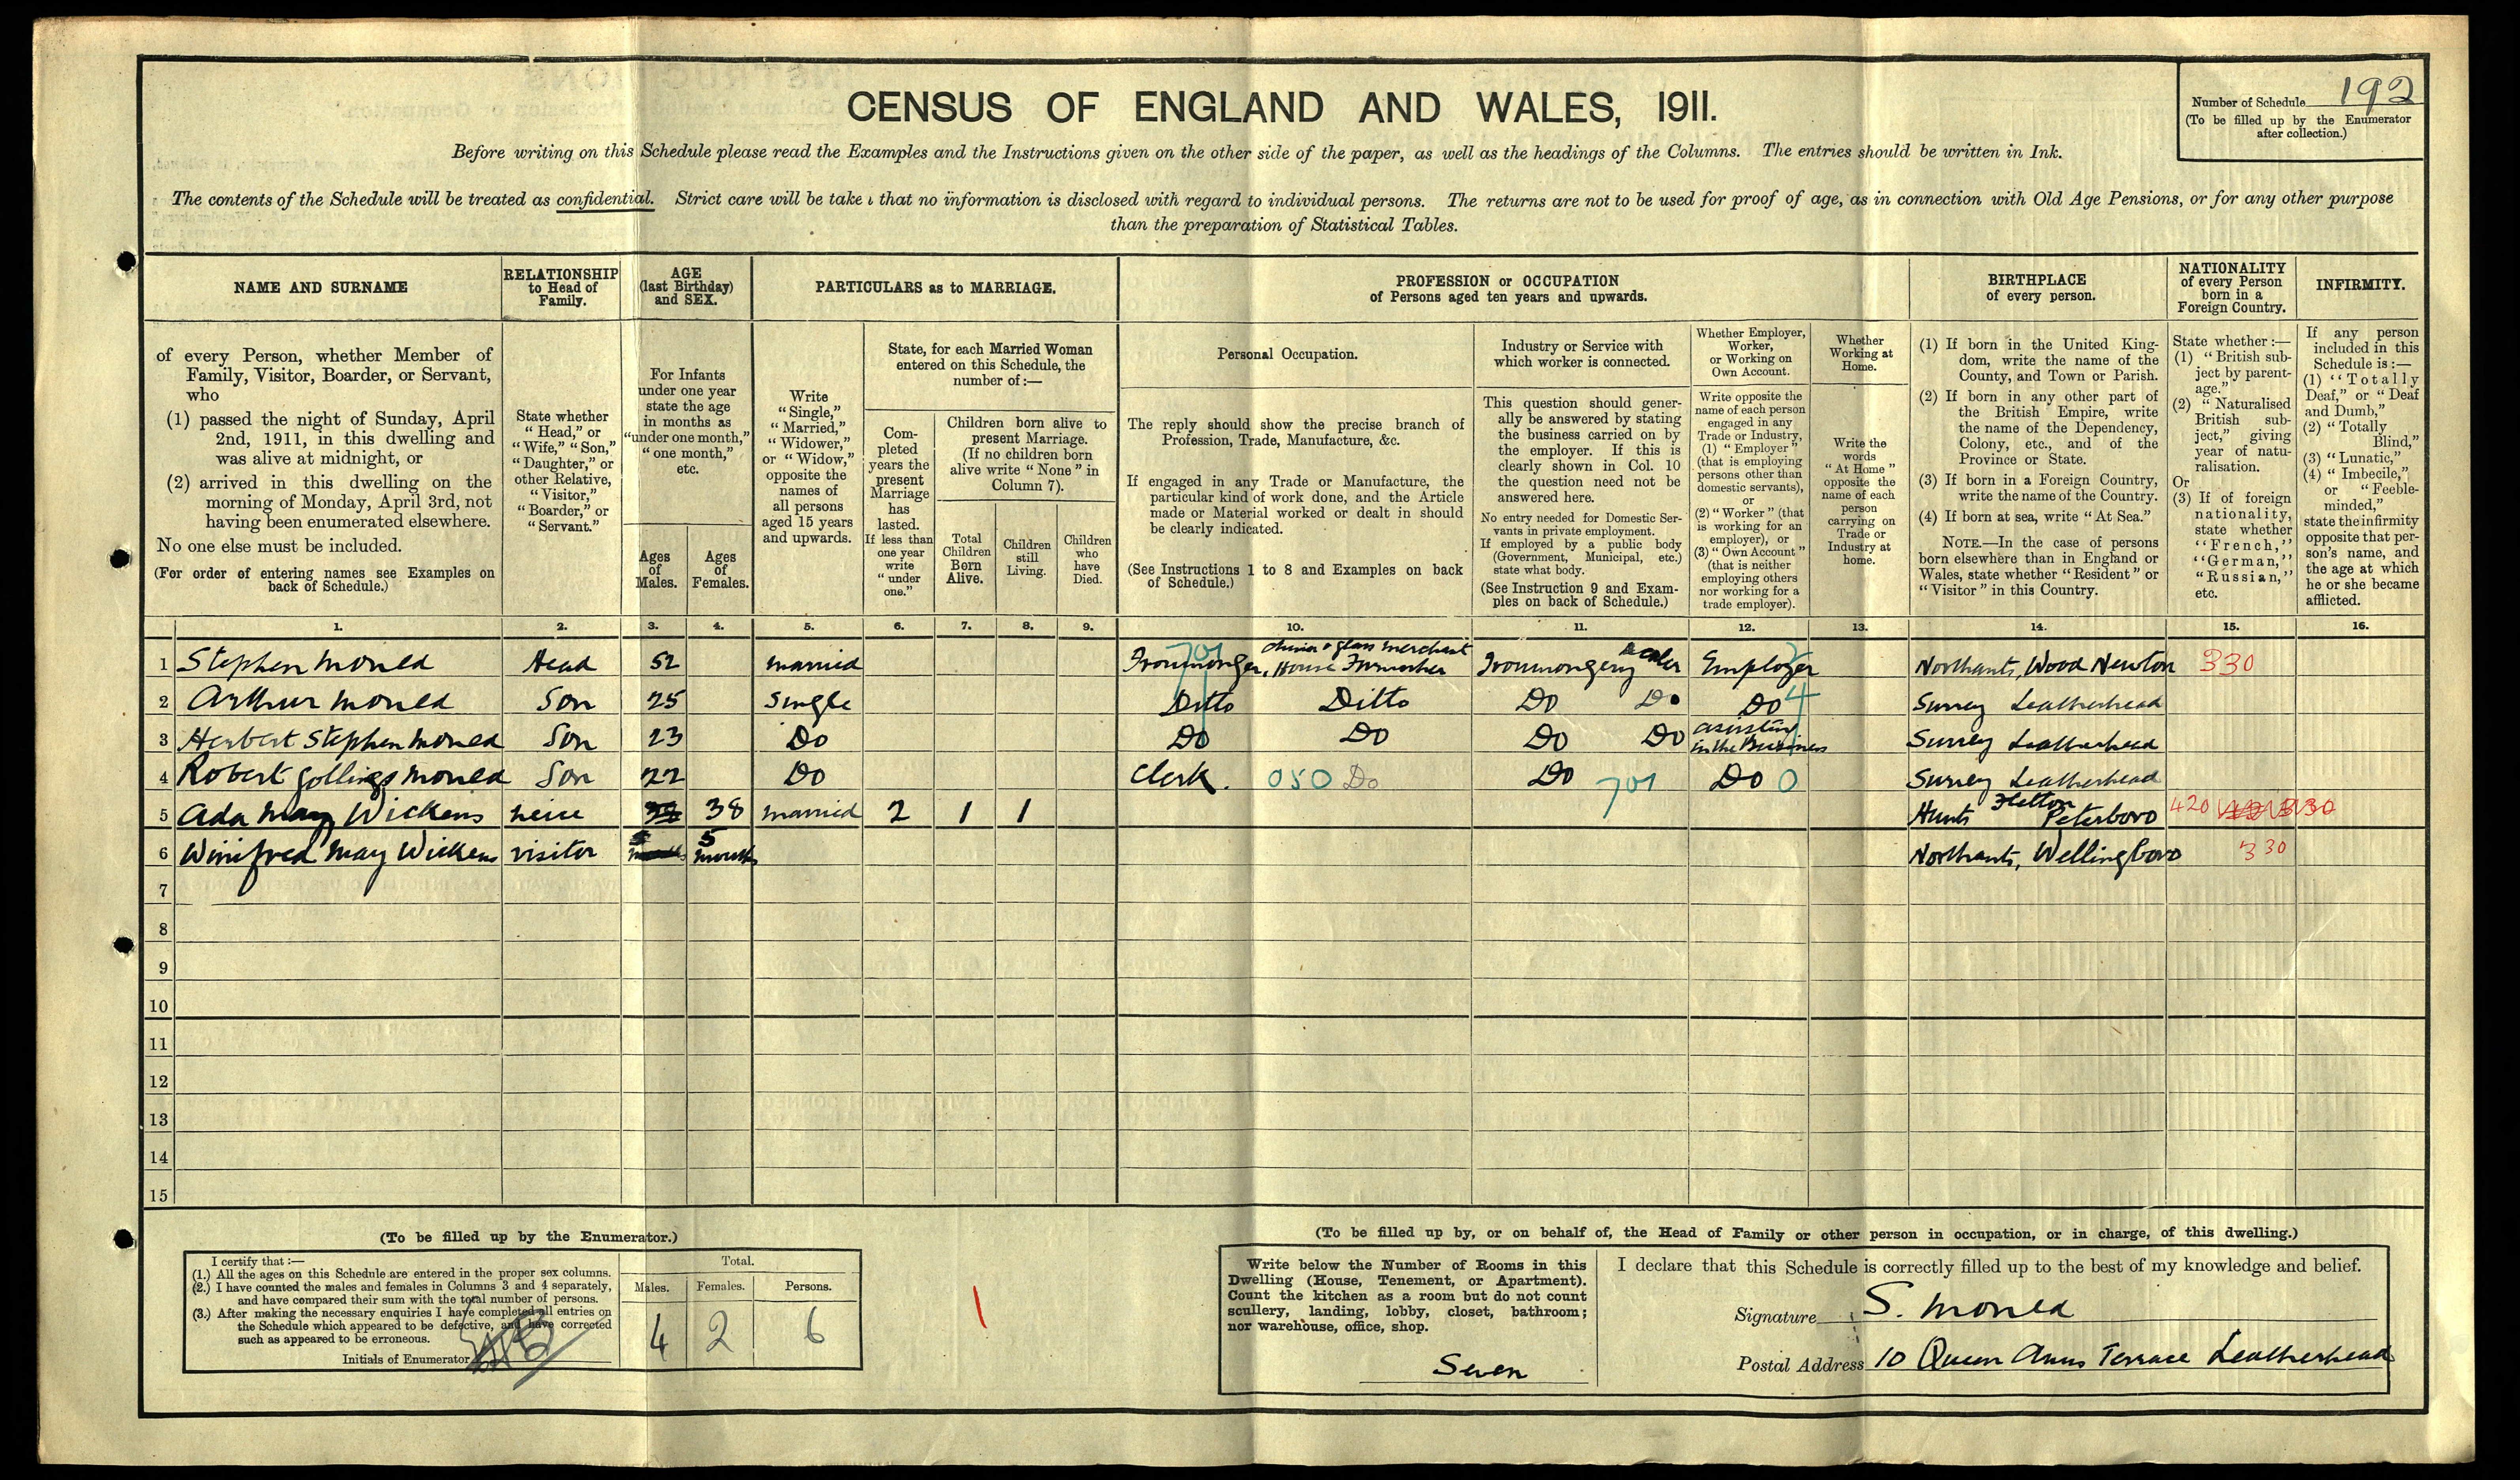 CENSUS OF ENGLAND AND WALES, 1911.
Number of Schedule 192
(To be filled up by the Enumerator
after collection.)
Before writing on this Schedule please read the Examples and the Instructions given on the other side of the paper, as well as the headings of the Columns. The entries should be written in Ink.
The contents of the Schedule will be treated as confidential. Strict care will be taken that no information is disclosed with regard to individual persons. The returns are not to be used for proof of age, as in connection with Old Age Pensions, or for any other purpose
than the preparation of Statistical Tables.
NAME AND SURNAME
of every Person, whether Member of
Family, Visitor, Boarder, or Servant,
who
(1) passed the night of Sunday, April
2nd, 1911, in this dwelling and
was alive at midnight, or
(2) arrived in this dwelling on the
morning of Monday, April 3rd, not
having been enumerated elsewhere.
No one else must be included.
(For order of entering names see Examples on
back of Schedule.)
RELATIONSHIP
to Head of
Family.
State whether
"Head," or
"Wife," "Son,"
"Daughter," or
other Relative,
"Visitor,"
"Boarder," or
"Servant."
AGE
(last Birthday)
and SEX.
For Infants
under one year
state the age
in months as
"under one month,"
"one month,"
etc.
Ages
of
Males.
Ages
of
Females.
PARTICULARS as to MARRIAGE.
Write
"Single,"
"Married,"
"Widower,"
or "Widow,"
opposite the
names of
all persons
aged 15 years
and upwards.
State, for each Married Woman
entered on this Schedule, the
number of:—
Com-
pleted
years the
present
Marriage
has
lasted.
If less than
one year
write
"under
one."
Children born alive to
present Marriage.
(If no children born
alive write "None" in
Column 7).
Total
Children
Born
Alive.
Children
still
Living.
Children
who
have
Died.
PROFESSION or OCCUPATION
of Persons aged ten years and upwards.
Personal Occupation.
The reply should show the precise branch of
Profession, Trade, Manufacture, &c.
If engaged in any Trade or Manufacture, the
particular kind of work done, and the Article
made or Material worked or dealt in should
be clearly indicated.
(See Instructions 1 to 8 and Examples on back
of Schedule.)
Industry or Service with
which worker is connected.
This question should gener-
ally be answered by stating
the business carried on by
the employer. If this is
clearly shown in Col. 10
the question need not be
answered here.
No entry needed for Domestic Ser-
vants in private employment.
If employed by a public body
(Government, Municipal, etc.)
state what body.
(See Instruction 9 and Exam-
ples on back of Schedule.)
Whether Employer,
Worker,
or Working on
Own Account.
Write opposite the
name of each person
engaged in any
Trade or Industry,
(1) "Employer"
(that is employing
persons other than
domestic servants),
or
(2) "Worker" (that
is working for an
employer), or
(3) "Own Account"
(that is neither
employing others
nor working for a
trade employer).
Whether
Working at
Home.
Write the
words
"At Home"
opposite the
name of each
person
carrying on
Trade or
Industry at
home.
BIRTHPLACE
of every person.
(1) If born in the United King-
dom, write the name of the
County, and Town or Parish.
(2) If born in any other part of
the British Empire, write
the name of the Dependency,
Colony, etc., and of the
Province or State.
(3) If born in a Foreign Country,
write the name of the Country.
(4) If born at sea, write "At Sea."
NOTE.—In the case of persons
born elsewhere than in England or
Wales, state whether "Resident" or
"Visitor" in this Country.
NATIONALITY
of every Person
born in a
Foreign Country.
State whether:—
(1) "British sub-
ject by parent-
age."
(2) "Naturalised
British sub-
ject," giving
year of natu-
ralisation.
Or
(3) If of foreign
nationality,
state whether
"French,"
"German,"
"Russian,"
etc.
INFIRMITY.
If any person
included in this
Schedule is:—
(1) "Totally
Deaf," or "Deaf
and Dumb,"
(2) "Totally
Blind,"
(3) "Lunatic,"
(4) "Imbecile,"
or "Feeble-
minded,"
state the infirmity
opposite that per-
son's name, and
the age at which
he or she became
afflicted.
1. 2. 3. 4. 5. 6. 7. 8. 9. 10. 11. 12. 13. 14. 15. 16.
1 Stephen Mould Head 52 married Ironmonger, china & glass merchant House Furnisher 701 Ironmongery Dealer Employer Northants, Wood Newton 330
2 Arthur Mould Son 25 Single Ditto Ditto Do Do Do 4 Surrey Leatherhead
3 Herbert Stephen Mould Son 23 Do Do Do Do Do assisting in the Business Surrey Leatherhead
4 Robert Gollings Mould Son 22 Do Clerk. 050 Do Do 701 Do 0 Surrey Leatherhead
5 Ada May Wickens neice 38 married 2 1 1 Hunts Fletton Peterboro 420
6 Winifred May Wickens visitor 5 months Northants, Wellingboro 330
7
8
9
10
11
12
13
14
15
(To be filled up by the Enumerator.)
I certify that:—
(1.) All the ages on this Schedule are entered in the proper sex columns.
(2.) I have counted the males and females in Columns 3 and 4 separately,
and have compared their sum with the total number of persons.
(3.) After making the necessary enquiries I have completed all entries on
the Schedule which appeared to be defective, and have corrected
such as appeared to be erroneous.
Initials of Enumerator
Total.
Males. Females. Persons.
4 2 6
(To be filled up by, or on behalf of, the Head of Family or other person in occupation, or in charge, of this dwelling.)
Write below the Number of Rooms in this
Dwelling (House, Tenement, or Apartment).
Count the kitchen as a room but do not count
scullery, landing, lobby, closet, bathroom;
nor warehouse, office, shop.
Seven
I declare that this Schedule is correctly filled up to the best of my knowledge and belief.
Signature S. Mould
Postal Address 10 Queen Anns Terrace Leatherhead